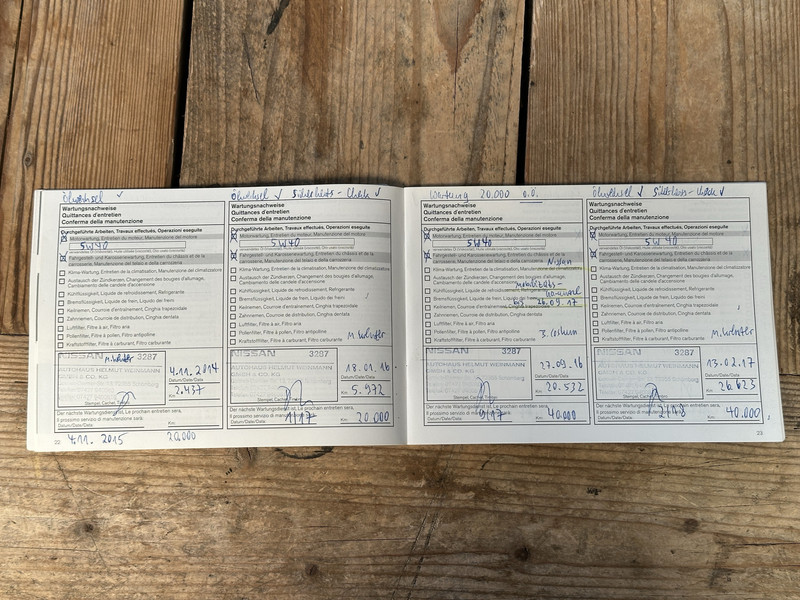 Ölwechsel ✓
Wartungsnachweise
Quittances d'entretien
Conferma della manutenzione
Durchgeführte Arbeiten, Travaux effectués, Operazioni eseguite
Motorwartung, Entretien du moteur, Manutenzione del motore
5W40
Fahrgestell- und Karosseriewartung, Entretien du châssis et de la
carrosserie, Manutenzione del telaio e della carrozzeria
Klima-Wartung, Entretien de la climatisation, Manutenzione del climatizzatore
Austausch der Zündkerzen, Changement des bougies d'allumage,
Cambiamento delle candele d'accensione
Kühlflüssigkeit, Liquide de refroidissement, Refrigerante
Bremsflüssigkeit, Liquide de frein, Liquido dei freni
Keilriemen, Courroie d'entraînement, Cinghia trapezoidale
Zahnriemen, Courroie de distribution, Cinghia dentata
Luftfilter, Filtre à air, Filtro aria
Pollenfilter, Filtre à pollen, Filtro antipolline
Kraftstofffilter, Filtre à carburant, Filtro carburante
NISSAN 3287
AUTOHAUS HELMUT WEINMANN
GMBH & CO. KG
4.11.2014
Datum/Date/Data
2.437
Km:
Stempel, Cachet, Timbro
Der nächste Wartungsdienst ist, Le prochain entretien sera,
Il prossimo servizio di manutenzione sarà:
Datum/Date/Data: Km:
4.11.2015 20.000
20
Ölwechsel ✓ Sicherheits-Check ✓
Wartungsnachweise
Quittances d'entretien
Conferma della manutenzione
Durchgeführte Arbeiten, Travaux effectués, Operazioni eseguite
Motorwartung, Entretien du moteur, Manutenzione del motore
5W40
Fahrgestell- und Karosseriewartung, Entretien du châssis et de la
carrosserie, Manutenzione del telaio e della carrozzeria
Klima-Wartung, Entretien de la climatisation, Manutenzione del climatizzatore
Austausch der Zündkerzen, Changement des bougies d'allumage,
Cambiamento delle candele d'accensione
Kühlflüssigkeit, Liquide de refroidissement, Refrigerante
Bremsflüssigkeit, Liquide de frein, Liquido dei freni
Keilriemen, Courroie d'entraînement, Cinghia trapezoidale
Zahnriemen, Courroie de distribution, Cinghia dentata
Luftfilter, Filtre à air, Filtro aria
Pollenfilter, Filtre à pollen, Filtro antipolline
Kraftstofffilter, Filtre à carburant, Filtro carburante
NISSAN 3287
AUTOHAUS HELMUT WEINMANN
GMBH & CO. KG
18.01.16
Datum/Date/Data
5.972
Km:
Stempel, Cachet, Timbro
Der nächste Wartungsdienst ist, Le prochain entretien sera,
Il prossimo servizio di manutenzione sarà:
1/17 20.000
Datum/Date/Data: Km:
Wartung 20.000 o.o.
Wartungsnachweise
Quittances d'entretien
Conferma della manutenzione
Durchgeführte Arbeiten, Travaux effectués, Operazioni eseguite
Motorwartung, Entretien du moteur, Manutenzione del motore
5W40
Fahrgestell- und Karosseriewartung, Entretien du châssis et de la
carrosserie, Manutenzione del telaio e della carrozzeria
Nissan
Klima-Wartung, Entretien de la climatisation, Manutenzione del climatizzatore
Austausch der Zündkerzen, Changement des bougies d'allumage,
Cambiamento delle candele d'accensione
Mobilitäts-
Kühlflüssigkeit, Liquide de refroidissement, Refrigerante
Bremsflüssigkeit, Liquide de frein, Liquido dei freni
bis 26.09.17
Keilriemen, Courroie d'entraînement, Cinghia trapezoidale
Zahnriemen, Courroie de distribution, Cinghia dentata
Luftfilter, Filtre à air, Filtro aria
Pollenfilter, Filtre à pollen, Filtro antipolline
Kraftstofffilter, Filtre à carburant, Filtro carburante
NISSAN 3287
AUTOHAUS HELMUT WEINMANN
GMBH & CO. KG
27.09.16
Datum/Date/Data
20.522
Km:
Stempel, Cachet, Timbro
Der nächste Wartungsdienst ist, Le prochain entretien sera,
Il prossimo servizio di manutenzione sarà:
9/17 40.000
Datum/Date/Data: Km:
Ölwechsel ✓ Sicherheits-Check ✓
Wartungsnachweise
Quittances d'entretien
Conferma della manutenzione
Durchgeführte Arbeiten, Travaux effectués, Operazioni eseguite
Motorwartung, Entretien du moteur, Manutenzione del motore
5W40
Fahrgestell- und Karosseriewartung, Entretien du châssis et de la
carrosserie, Manutenzione del telaio e della carrozzeria
Klima-Wartung, Entretien de la climatisation, Manutenzione del climatizzatore
Austausch der Zündkerzen, Changement des bougies d'allumage,
Cambiamento delle candele d'accensione
Kühlflüssigkeit, Liquide de refroidissement, Refrigerante
Bremsflüssigkeit, Liquide de frein, Liquido dei freni
Keilriemen, Courroie d'entraînement, Cinghia trapezoidale
Zahnriemen, Courroie de distribution, Cinghia dentata
Luftfilter, Filtre à air, Filtro aria
Pollenfilter, Filtre à pollen, Filtro antipolline
Kraftstofffilter, Filtre à carburant, Filtro carburante
NISSAN 3287
AUTOHAUS HELMUT WEINMANN
GMBH & CO. KG
13.02.17
Datum/Date/Data
26.623
Km:
Stempel, Cachet, Timbro
Der nächste Wartungsdienst ist, Le prochain entretien sera,
Il prossimo servizio di manutenzione sarà:
2/18 40.000
Datum/Date/Data: Km:
23